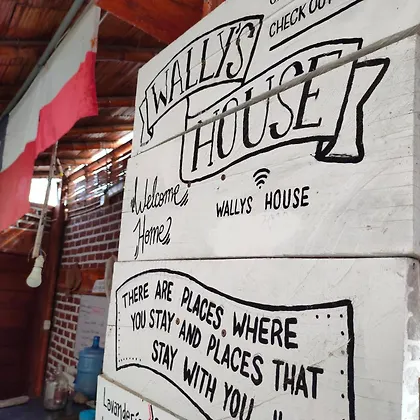 CHECK OUT
WALLY'S
HOUSE
Welcome
Home
WALLYS HOUSE
THERE ARE PLACES WHERE
YOU STAY AND PLACES THAT
STAY WITH YOU